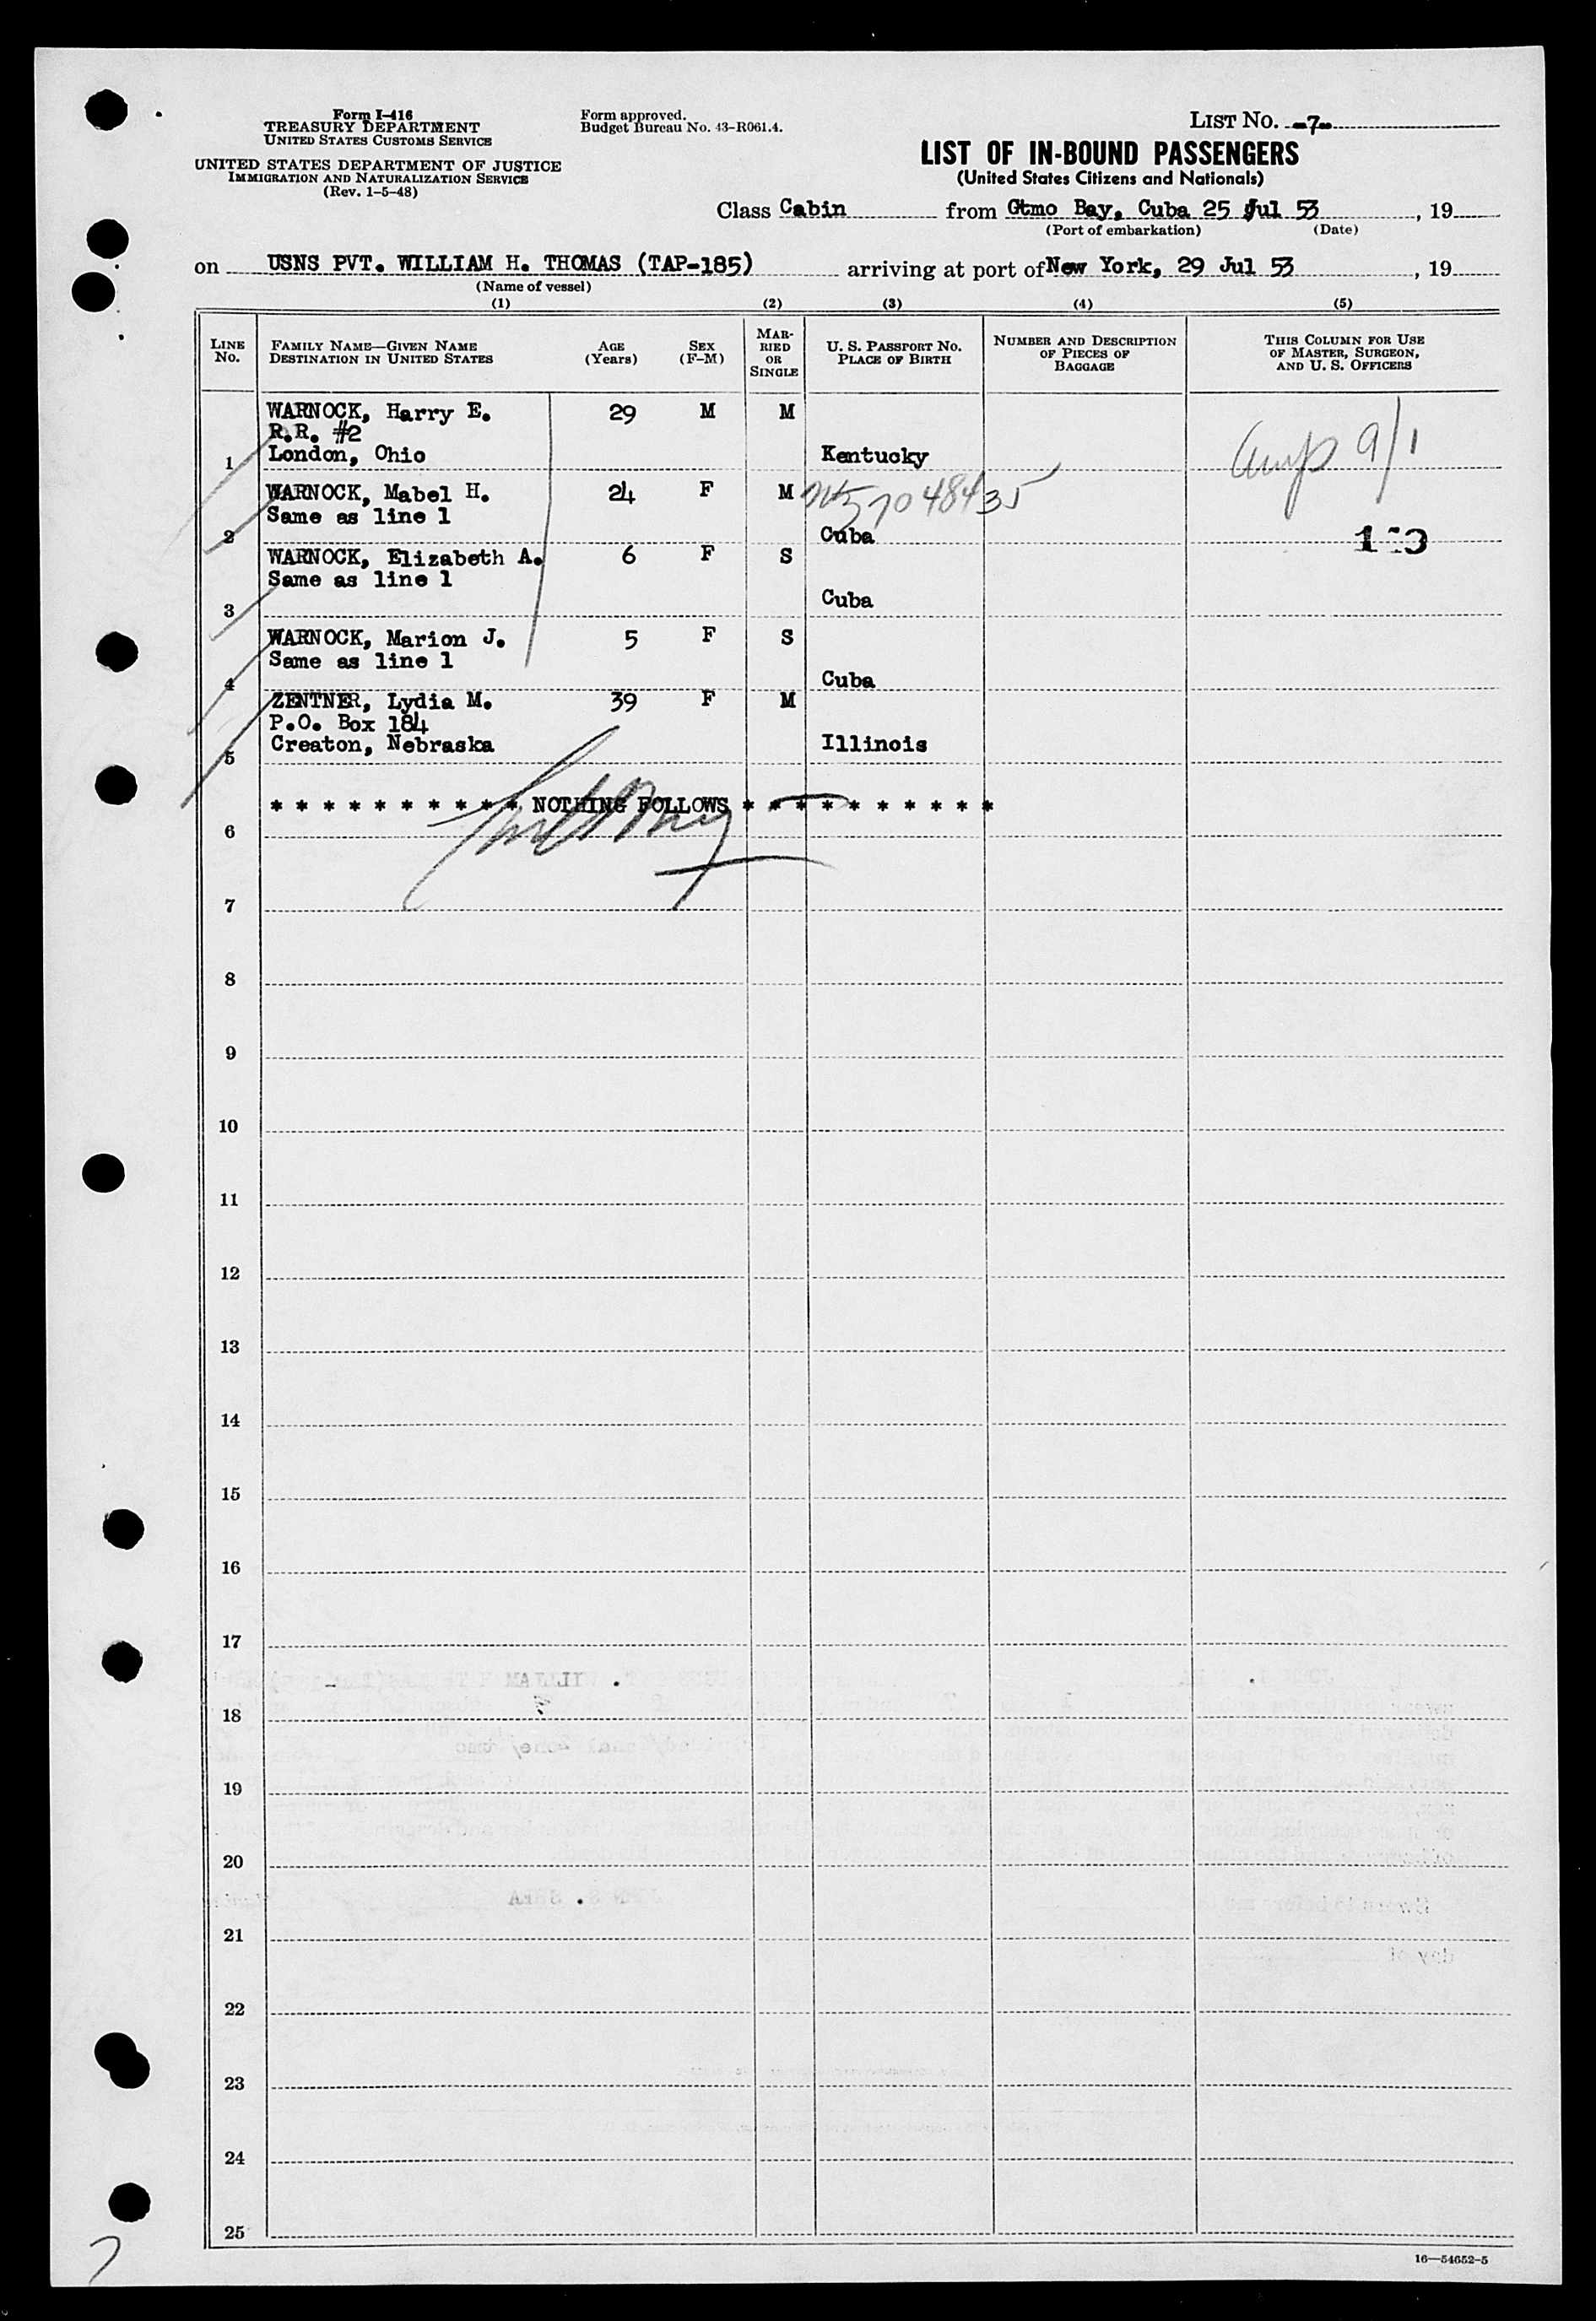 Form I-416
TREASURY DEPARTMENT
UNITED STATES CUSTOMS SERVICE
UNITED STATES DEPARTMENT OF JUSTICE
IMMIGRATION AND NATURALIZATION SERVICE
(Rev. 1-5-48)
Form approved.
Budget Bureau No. 43-R061.4.
LIST NO. -7-
LIST OF IN-BOUND PASSENGERS
(United States Citizens and Nationals)
Class Cabin from Gtmo Bay, Cuba 25 Jul 53, 19
(Port of embarkation) (Date)
on USNS PVT. WILLIAM H. THOMAS (TAP-185) arriving at port of New York, 29 Jul 53, 19
(Name of vessel)
(1) (2) (3) (4) (5)
LINE No.
FAMILY NAME—GIVEN NAME
DESTINATION IN UNITED STATES
AGE
(Years)
SEX
(F-M)
MARRIED OR SINGLE
U. S. PASSPORT NO.
PLACE OF BIRTH
NUMBER AND DESCRIPTION
OF PIECES OF
BAGGAGE
THIS COLUMN FOR USE
OF MASTER, SURGEON,
AND U. S. OFFICERS
WARNOCK, Harry E. 29 M M
R.R. #2
1 London, Ohio Kentucky
9/1
WARNOCK, Mabel H. 24 F M
7048435
Same as line 1
2 Cuba
WARNOCK, Elizabeth A. 6 F S
Same as line 1
3 Cuba
WARNOCK, Marion J. 5 F S
Same as line 1
4 Cuba
ZENTNER, Lydia M. 39 F M
P.O. Box 184
5 Creaton, Nebraska Illinois
* * * * * * * * * * NOTHING FOLLOWS * * * * * * * * * *
6
7
8
9
10
11
12
13
14
15
16
17
18
19
20
21
22
23
24
25
7
16—54652-5